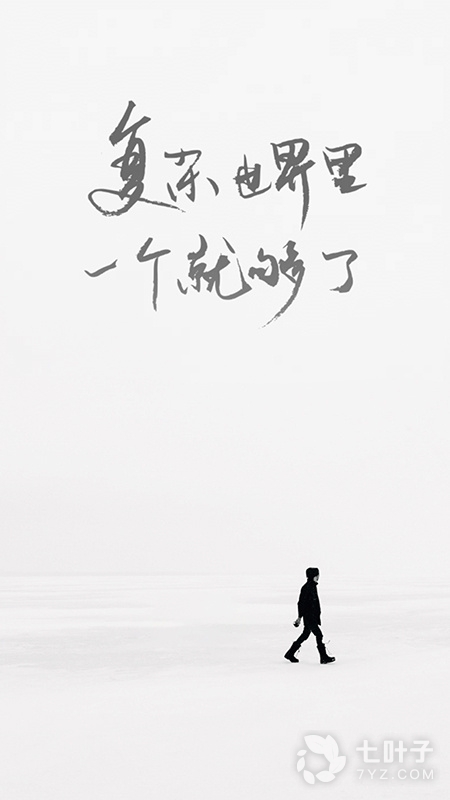 复杂世界里
一个就够了
七叶子
7YZ.COM